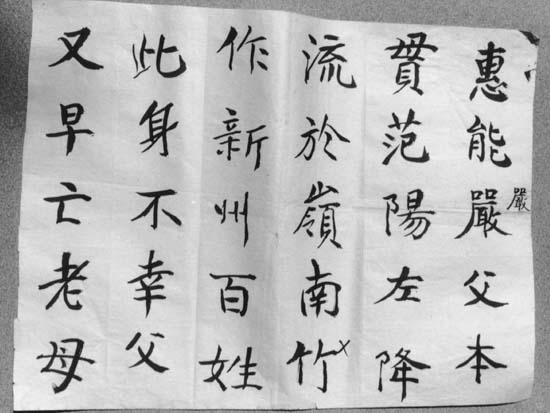 惠能嚴父本
嚴
貫范陽左降
流於嶺南竹
作新州百姓
此身不幸父
又早亡老母